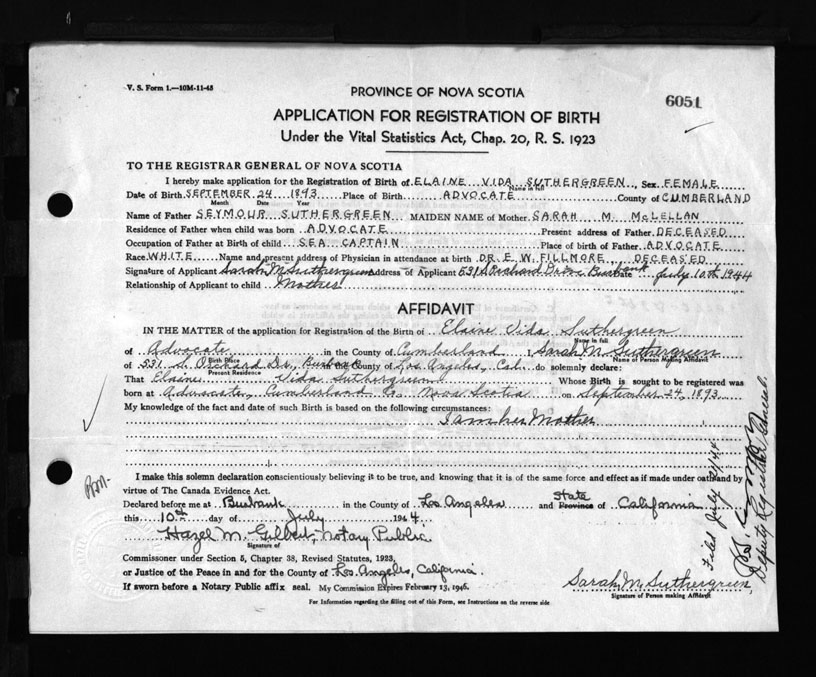 V. S. Form 1.—10M-11-43
PROVINCE OF NOVA SCOTIA
6051
APPLICATION FOR REGISTRATION OF BIRTH
Under the Vital Statistics Act, Chap. 20, R. S. 1923
TO THE REGISTRAR GENERAL OF NOVA SCOTIA
I hereby make application for the Registration of Birth of ELAINE VIDA SUTHERGREEN, Sex FEMALE
Name in full
Date of Birth SEPTEMBER 24 1893 Place of Birth ADVOCATE County of CUMBERLAND
Month Date Year
Name of Father SEYMOUR SUTHERGREEN MAIDEN NAME of Mother SARAH M. McLELLAN
Residence of Father when child was born ADVOCATE Present address of Father DECEASED
Occupation of Father at Birth of child SEA CAPTAIN Place of birth of Father ADVOCATE
Race WHITE Name and present address of Physician in attendance at birth DR. E. W. FILLMORE, DECEASED
Signature of Applicant Sarah M Suthergreen Address of Applicant 531 S Orchard Drive Burbank Date July 10th 1944
Relationship of Applicant to child Mother
AFFIDAVIT
IN THE MATTER of the application for Registration of the Birth of Elaine Vida Suthergreen
Name in full
of Advocate in the County of Cumberland I, Sarah M. Suthergreen
Birth Place Name of Person making Affidavit
of 531 S. Orchard Dr., Burbank Los Angeles, Cal. do solemnly declare:
Present Residence
That Elaine Vida Suthergreen Whose Birth is sought to be registered was
born at Advocate, Cumberland Co, Nova Scotia on September 24, 1893
My knowledge of the fact and date of such Birth is based on the following circumstances:
I am her Mother
I make this solemn declaration conscientiously believing it to be true, and knowing that it is of the same force and effect as if made under oath and by
virtue of The Canada Evidence Act.
Declared before me at Burbank in the County of Los Angeles and State Province of California
this 10th day of July 1944
Hazel M. Gilbert, Notary Public
Signature of
Commissioner under Section 5, Chapter 38, Revised Statutes, 1923,
or Justice of the Peace in and for the County of Los Angeles, California.
If sworn before a Notary Public affix seal. My Commission Expires February 13, 1946.
Sarah M. Suthergreen
Signature of Person making Affidavit
For Information regarding the filling out of this Form, see Instructions on the reverse side
Filed July 21/44
Deputy Registrar General